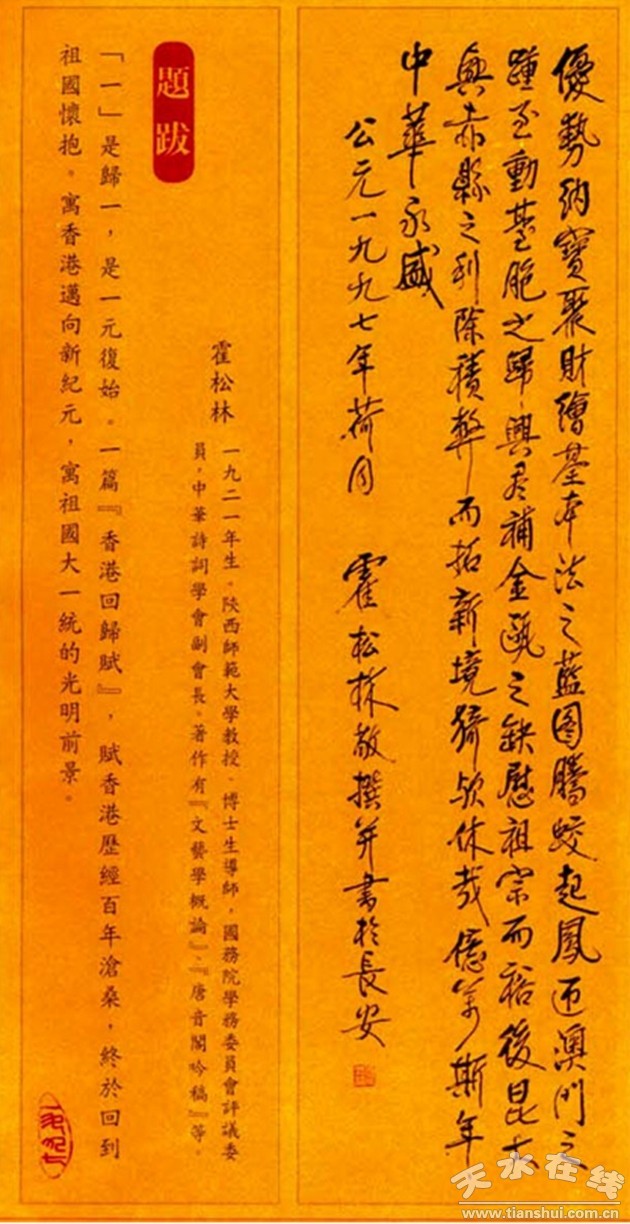 優勢納寶聚財繪基本法之藍图騰蛟起鳳迎澳门之
踵至動基胞之歸興君補金甌之缺慰祖宗而裕後昆大
興赤縣之利除積弊而拓新境猗欤休哉億萬斯年
中華永盛
公元一九九七年荷月 霍松林敬撰并書於長安
霍松林 一九二一年生。陝西師範大學教授、博士生導師，國務院學務委員會評議委
員，中華詩詞學會副會長。著作有『文藝學概論』、『唐音閣吟稿』等。
題跋
「一」是歸一，是一元復始。一篇『香港回歸賦』，賦香港歷經百年滄桑，終於回到
祖國懷抱。寓香港邁向新紀元，寓祖國大一統的光明前景。
天水在线
www.tianshui.com.cn